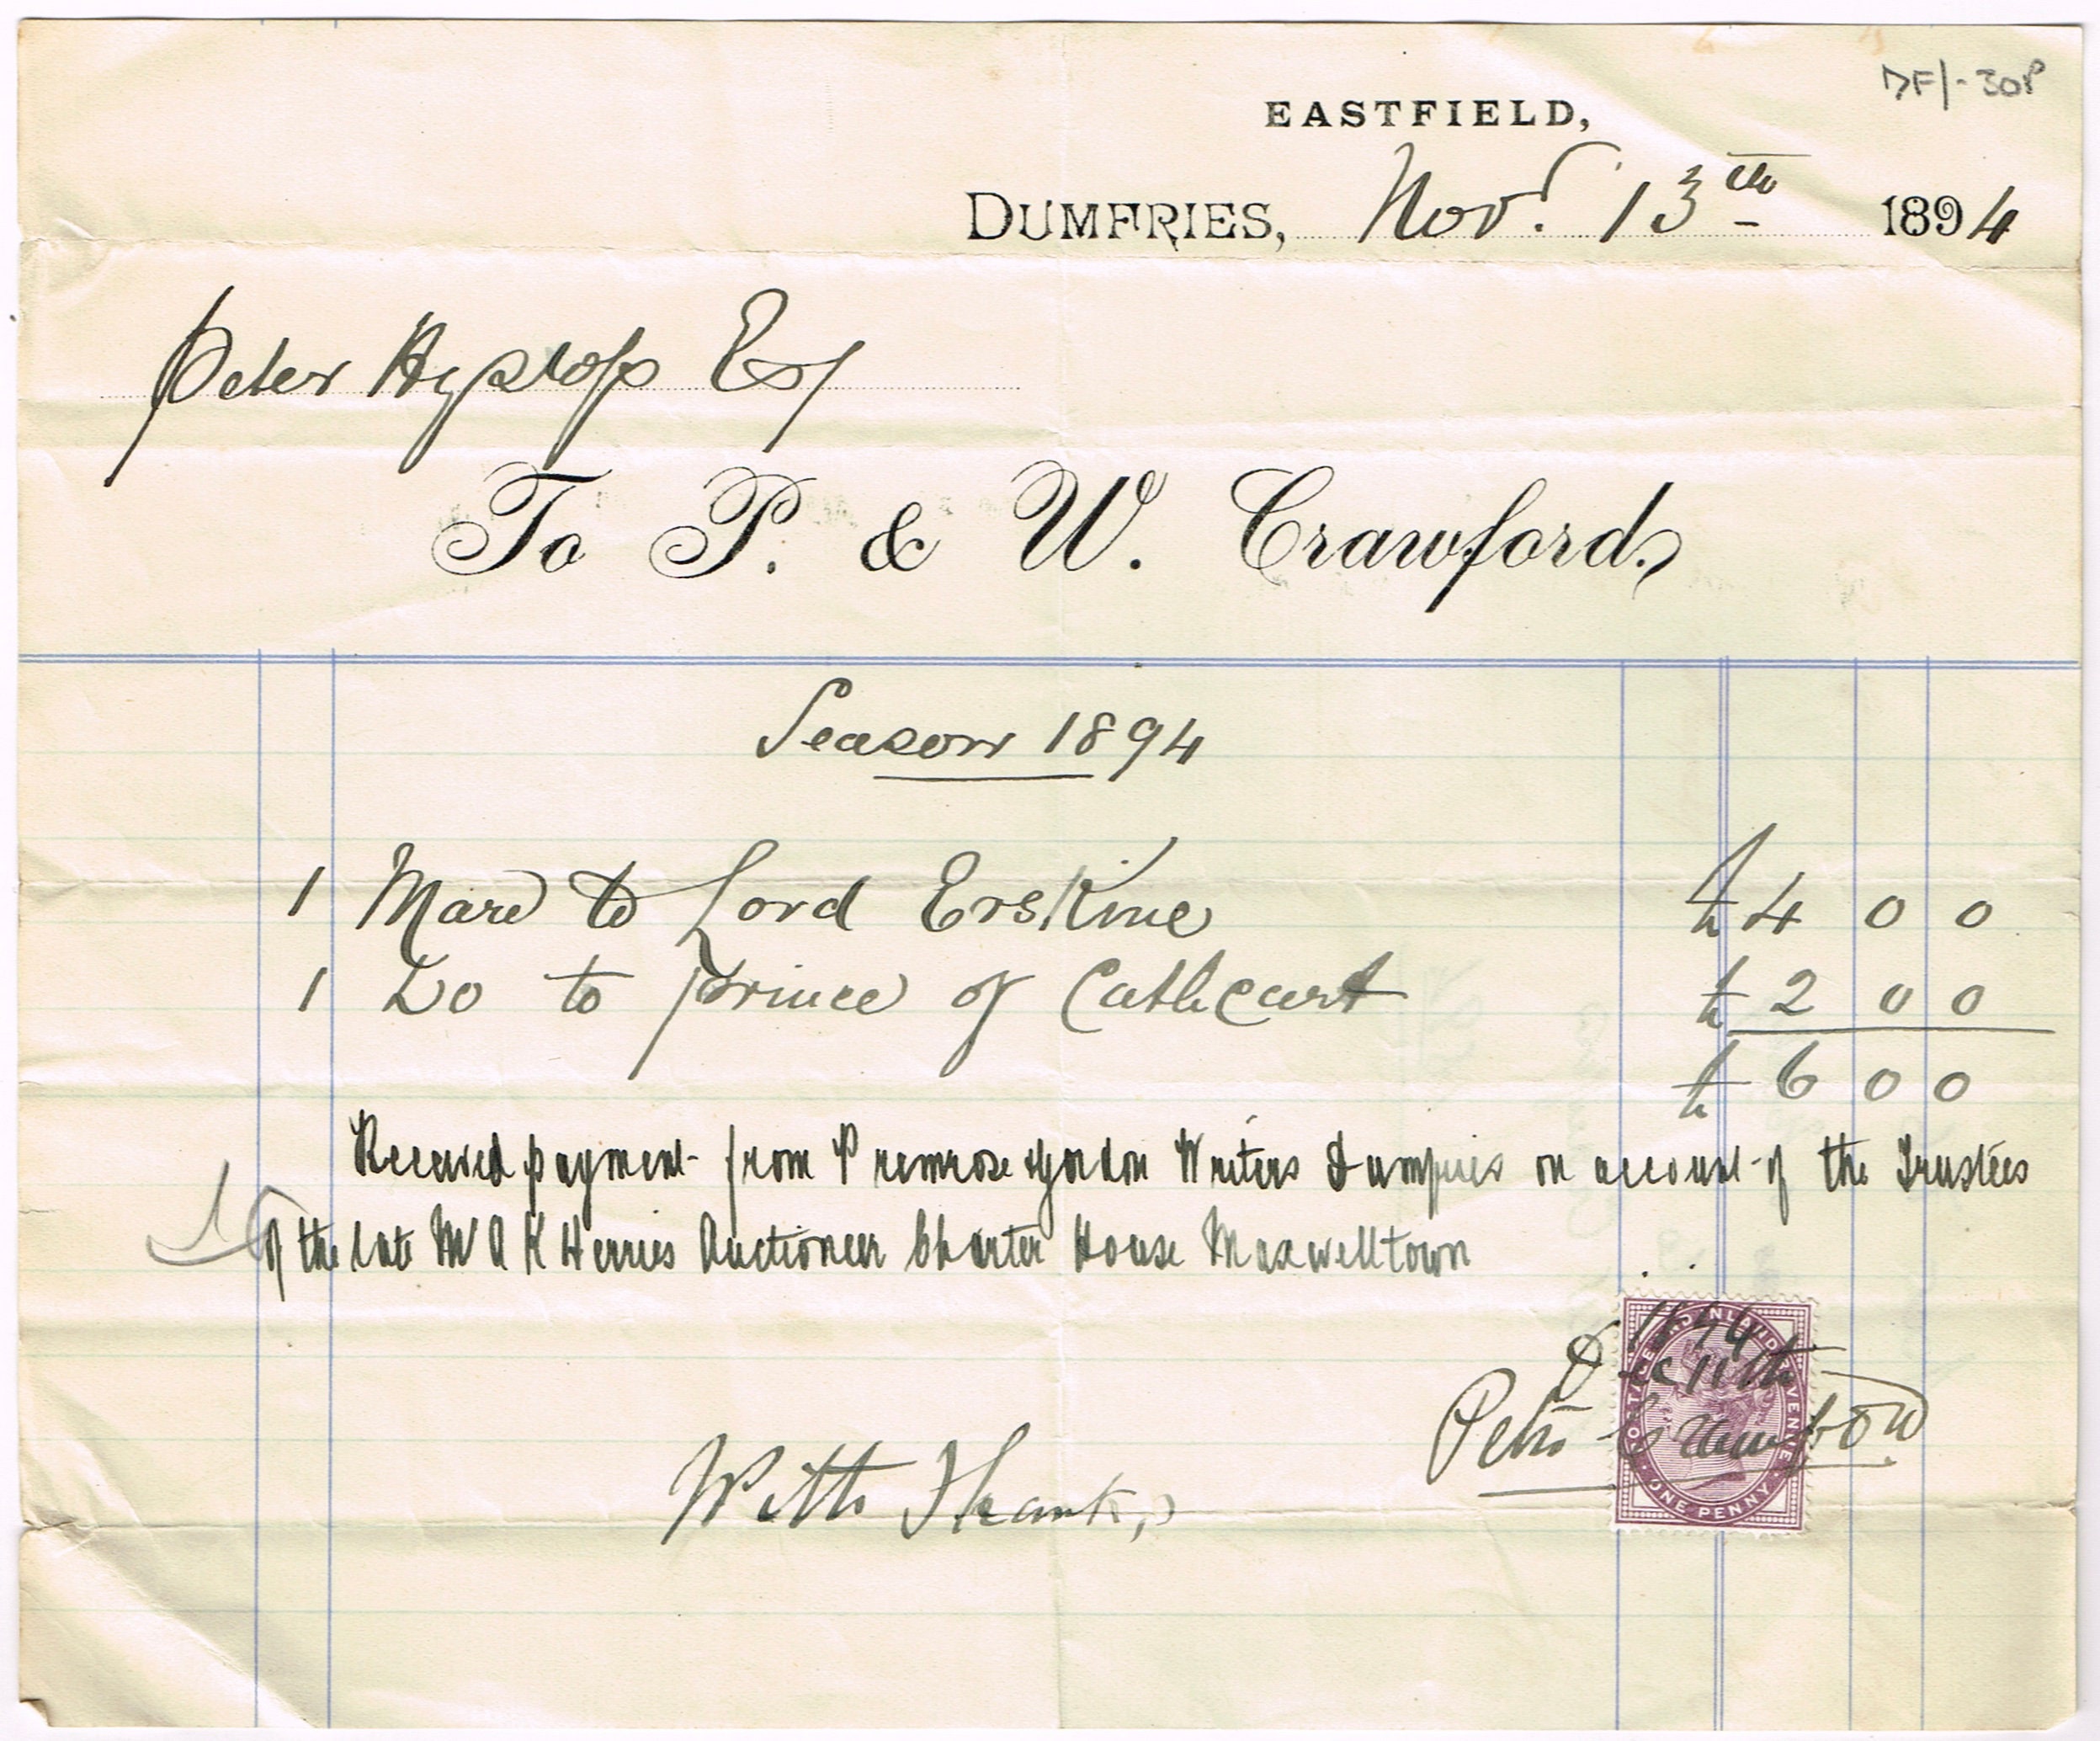 DF/-30P
EASTFIELD,
DUMFRIES, Novr. 13th 1894
Peter Hyslop Esq
To P. & W. Crawford.
Season 1894
1 Mare to Lord Erskine £4 0 0
1 Do to Prince of Cathcart £2 0 0
£6 0 0
Received payment from Primrose & Gordon Writers Dumfries on account of the Trustees
of the late Mr A K Herries Auctioneer Charter House Maxwelltown
1894
Dec 11th
Peter Crawford
POSTAGE AND INLAND REVENUE
ONE PENNY
With Thanks